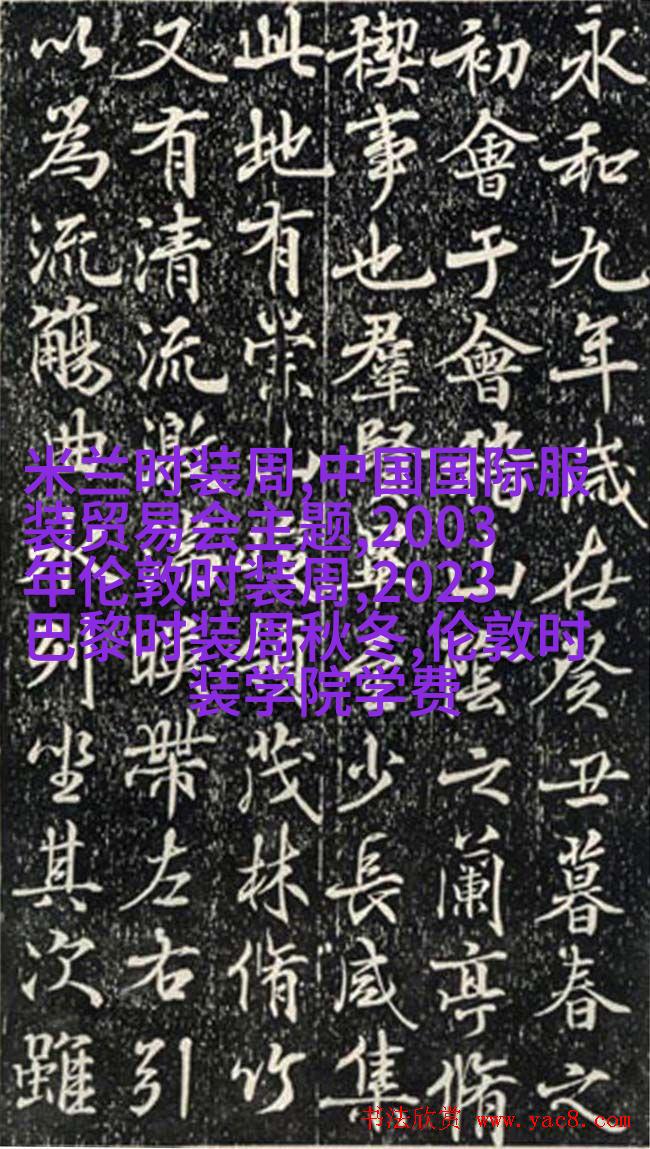 永和九年歲在癸丑暮春之
初會于會稽山陰之蘭亭脩
稧事也羣賢少長咸集
此地有崇山茂林脩竹
又有清流激暎帶左右引
以為流觴曲列坐其次雖
米兰时装周,中国国际服
装贸易会主题,2003
年伦敦时装周,2023
巴黎时装周秋冬,伦敦时
装学院学费
书法欣赏 www.yac8.com